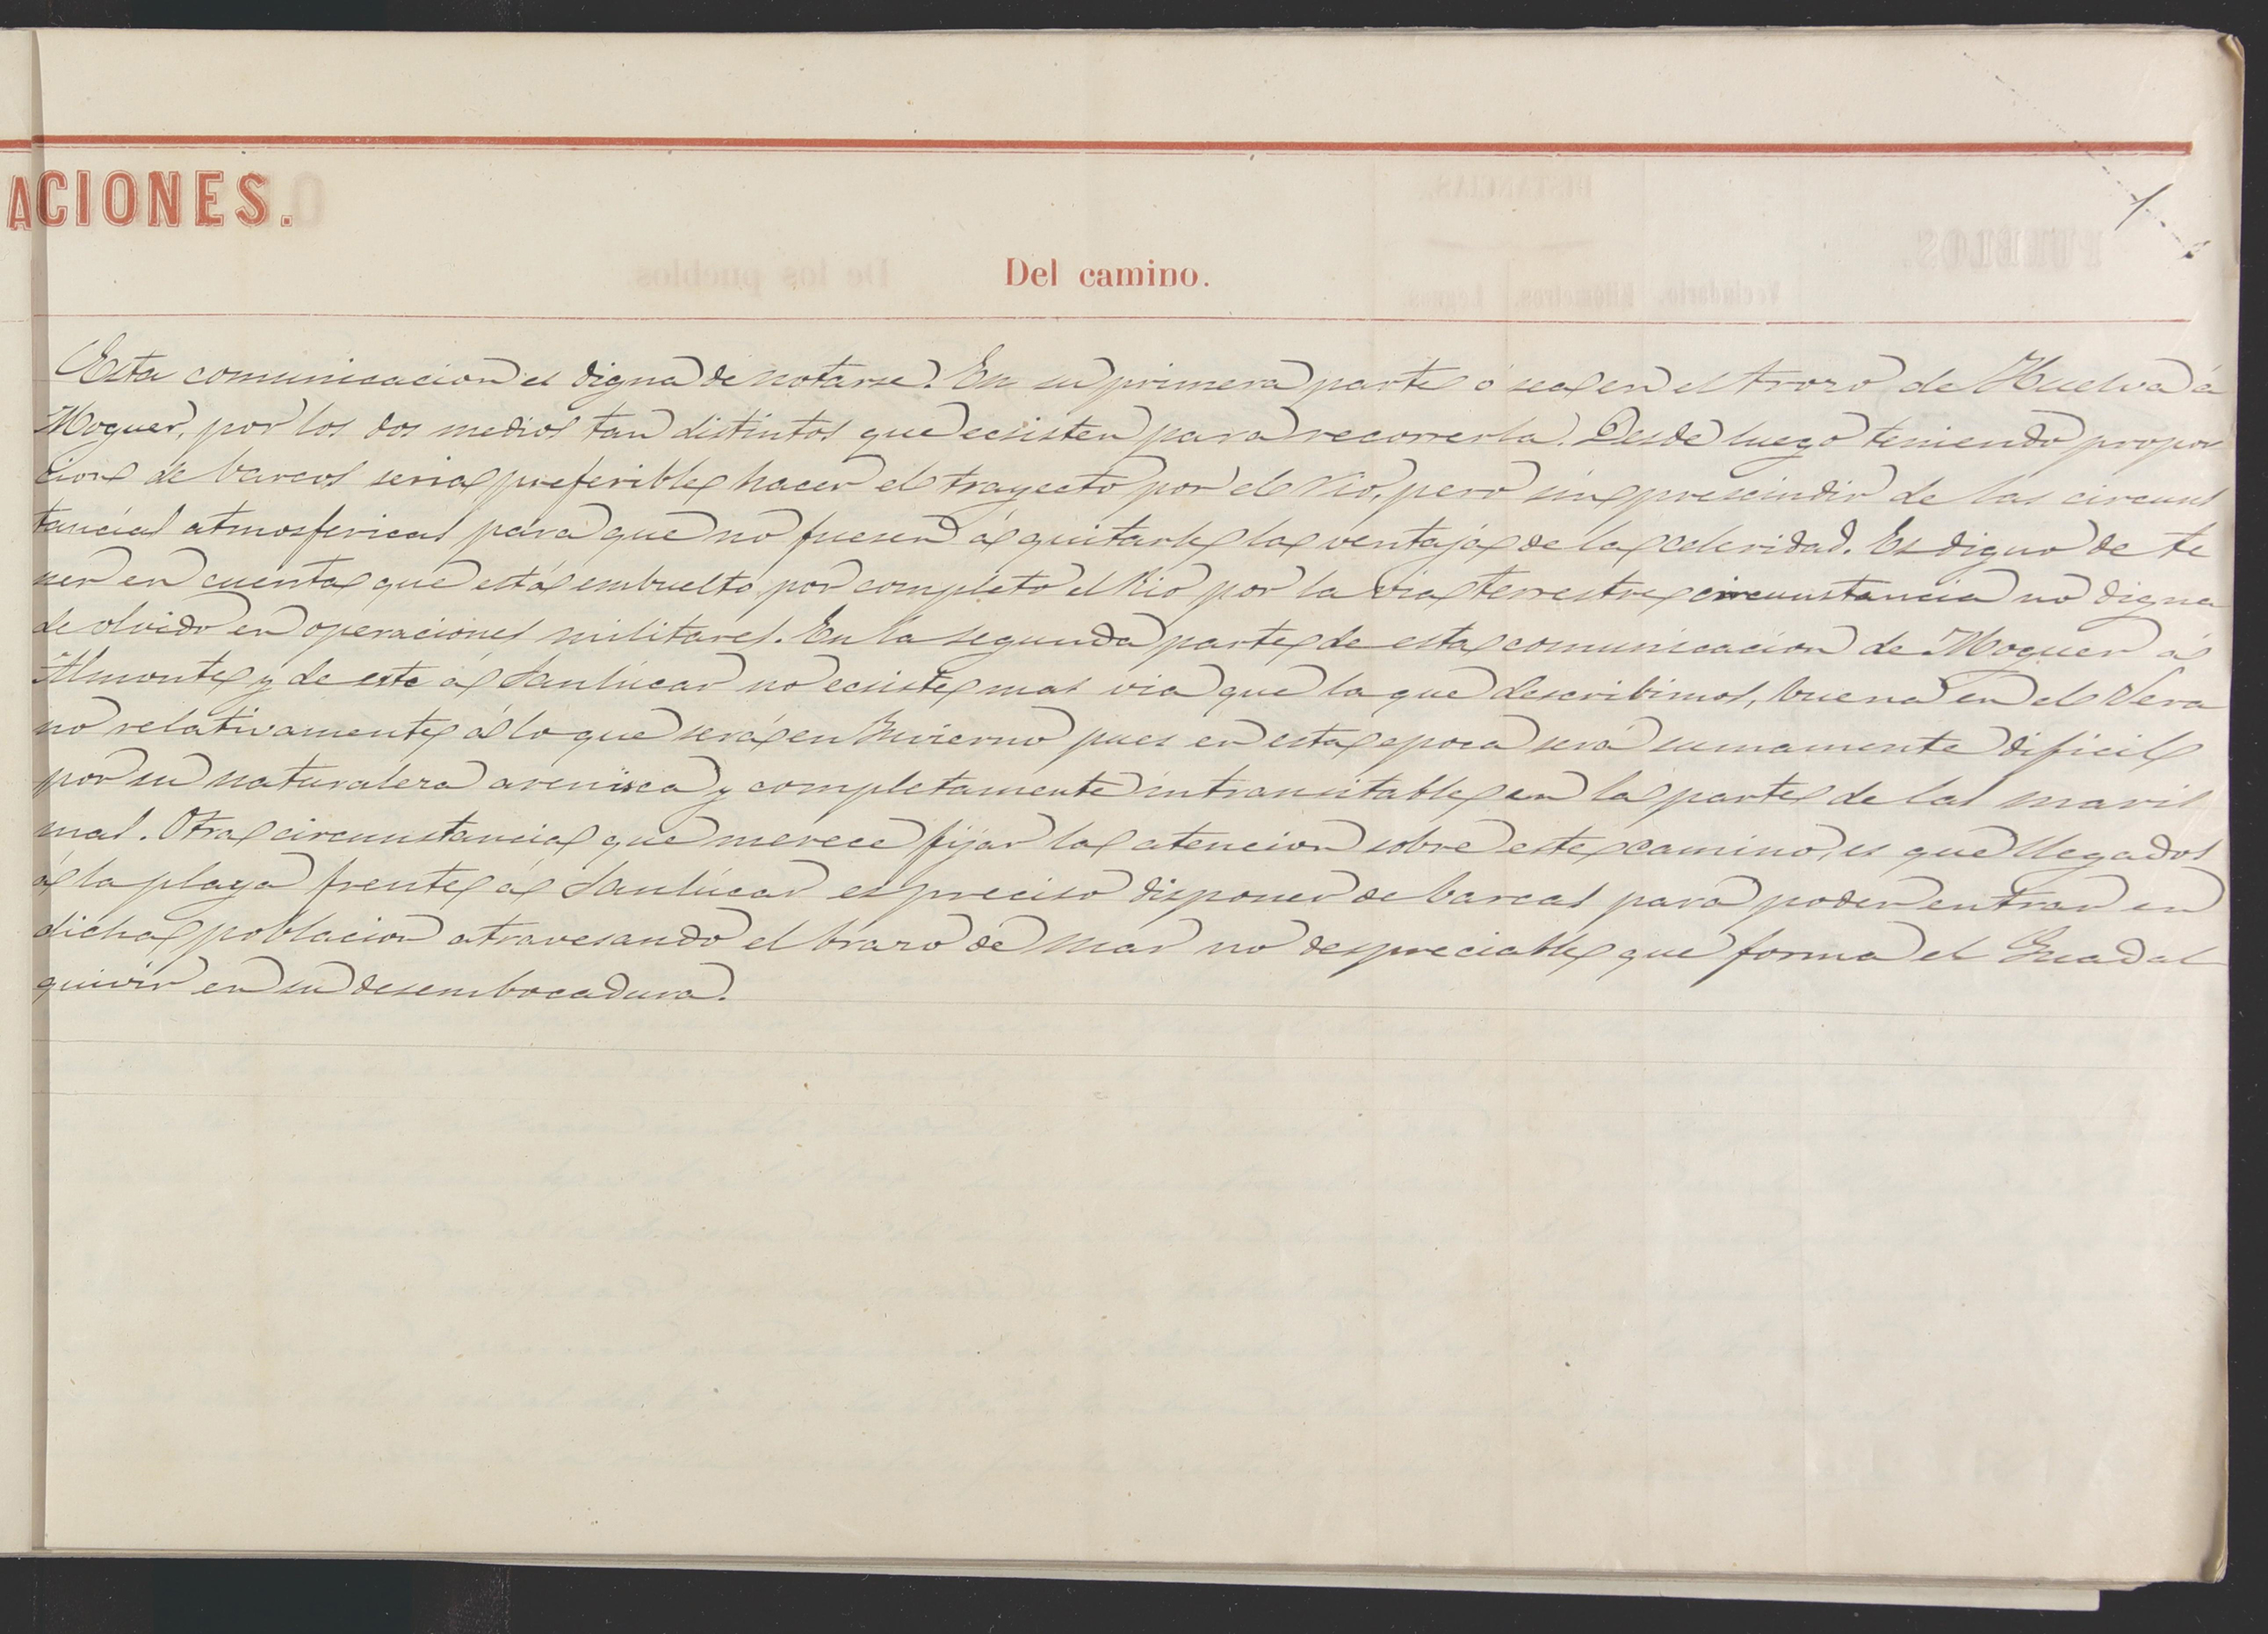 ACIONES.
Del camino.
Esta comunicacion es digna de notarse. En su primera parte ó sea en el trozo de Huelva á
Moguer, por los dos medios tan distintos que ecsisten para recorrerla. Desde luego teniendo propor
cion de barcos seria preferible hacer el trayecto por el rio, pero sin prescindir de las circuns
tancias atmosfericas para que no fuesen á quitarle la ventaja de la celeridad. Es digno de te
ner en cuenta que está embuelto por completo el Rio por la via terrestre circunstancia no digna
de olvido en operaciones militares. En la segunda parte de esta comunicacion de Moguer á
Almonte y de este á Sanlúcar no ecsiste mas via que la que describimos, buena en el Vera
no relativamente á lo que será en Invierno pues en esta epoca será sumamente dificil
por su naturaleza arenisca y completamente intransitable en la parte de las maris
mas. Otra circunstancia que merece fijar la atencion sobre este camino, es que llegados
á la playa frente á Sanlúcar es preciso disponer de barcas para poder entrar en
dicha poblacion atravesando el brazo de mar no despreciable que forma el Guadal
quivir en su desembocadura.